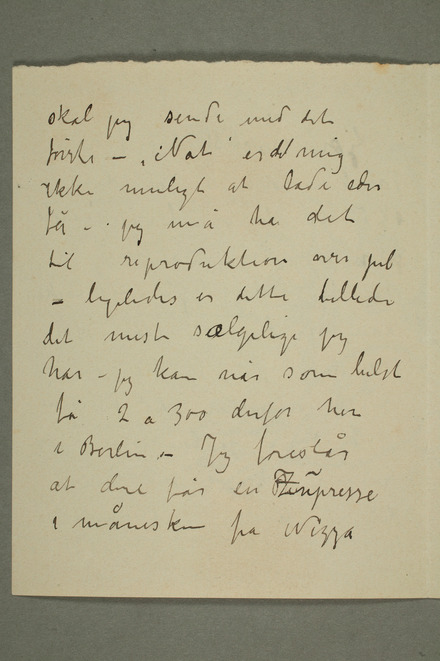 skal jeg sende med det
første – „Nat" er det mig
ikke muligt at lade eder
få – jeg må ha det
til reproduktion over jul
– ligeledes er dette billede
det mest sælgelige jeg
har – jeg kan når som helst
få 2 a 300 derfor her
i Berlin – Jeg foreslår
at dere får en
i månesken fra Nizza